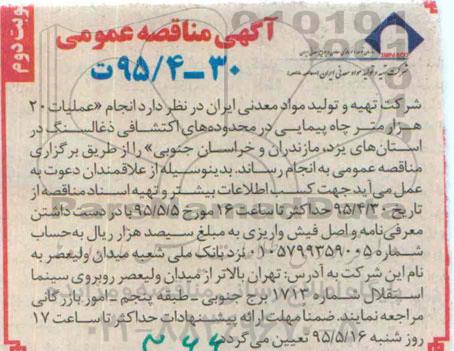 نوبت دوم
آگهی مناقصه عمومی
۳۰-۹۵/۴ت
شرکت تهیه و تولید مواد معدنی ایران (سهامی خاص)
شرکت تهیه و تولید مواد معدنی ایران در نظر دارد انجام «عملیات ۲۰
هزار متر چاه پیمایی در محدوده‌های اکتشافی ذغالسنگ در
استان‌های یزد، مازندران و خراسان جنوبی» را از طریق برگزاری
مناقصه عمومی به انجام رساند. بدینوسیله از علاقمندان دعوت به
عمل می‌آید جهت کسب اطلاعات بیشتر و تهیه اسناد مناقصه از
تاریخ ۹۵/۴/۳۰ حداکثر تا ساعت ۱۶ مورخ ۹۵/۵/۵ با در دست داشتن
معرفی‌نامه و اصل فیش واریزی به مبلغ سیصد هزار ریال به حساب
شماره ۰۱۰۵۷۹۹۳۵۹۰۰۵ نزد بانک ملی شعبه میدان ولیعصر به
نام این شرکت به آدرس: تهران بالاتر از میدان ولیعصر روبروی سینما
استقلال شماره ۱۷۱۳ برج جنوبی-طبقه پنجم-امور بازرگانی
مراجعه نمایند. ضمنا مهلت ارائه پیشنهادات حداکثر تا ساعت ۱۷
روز شنبه ۹۵/۵/۱۶ تعیین می‌گردد.